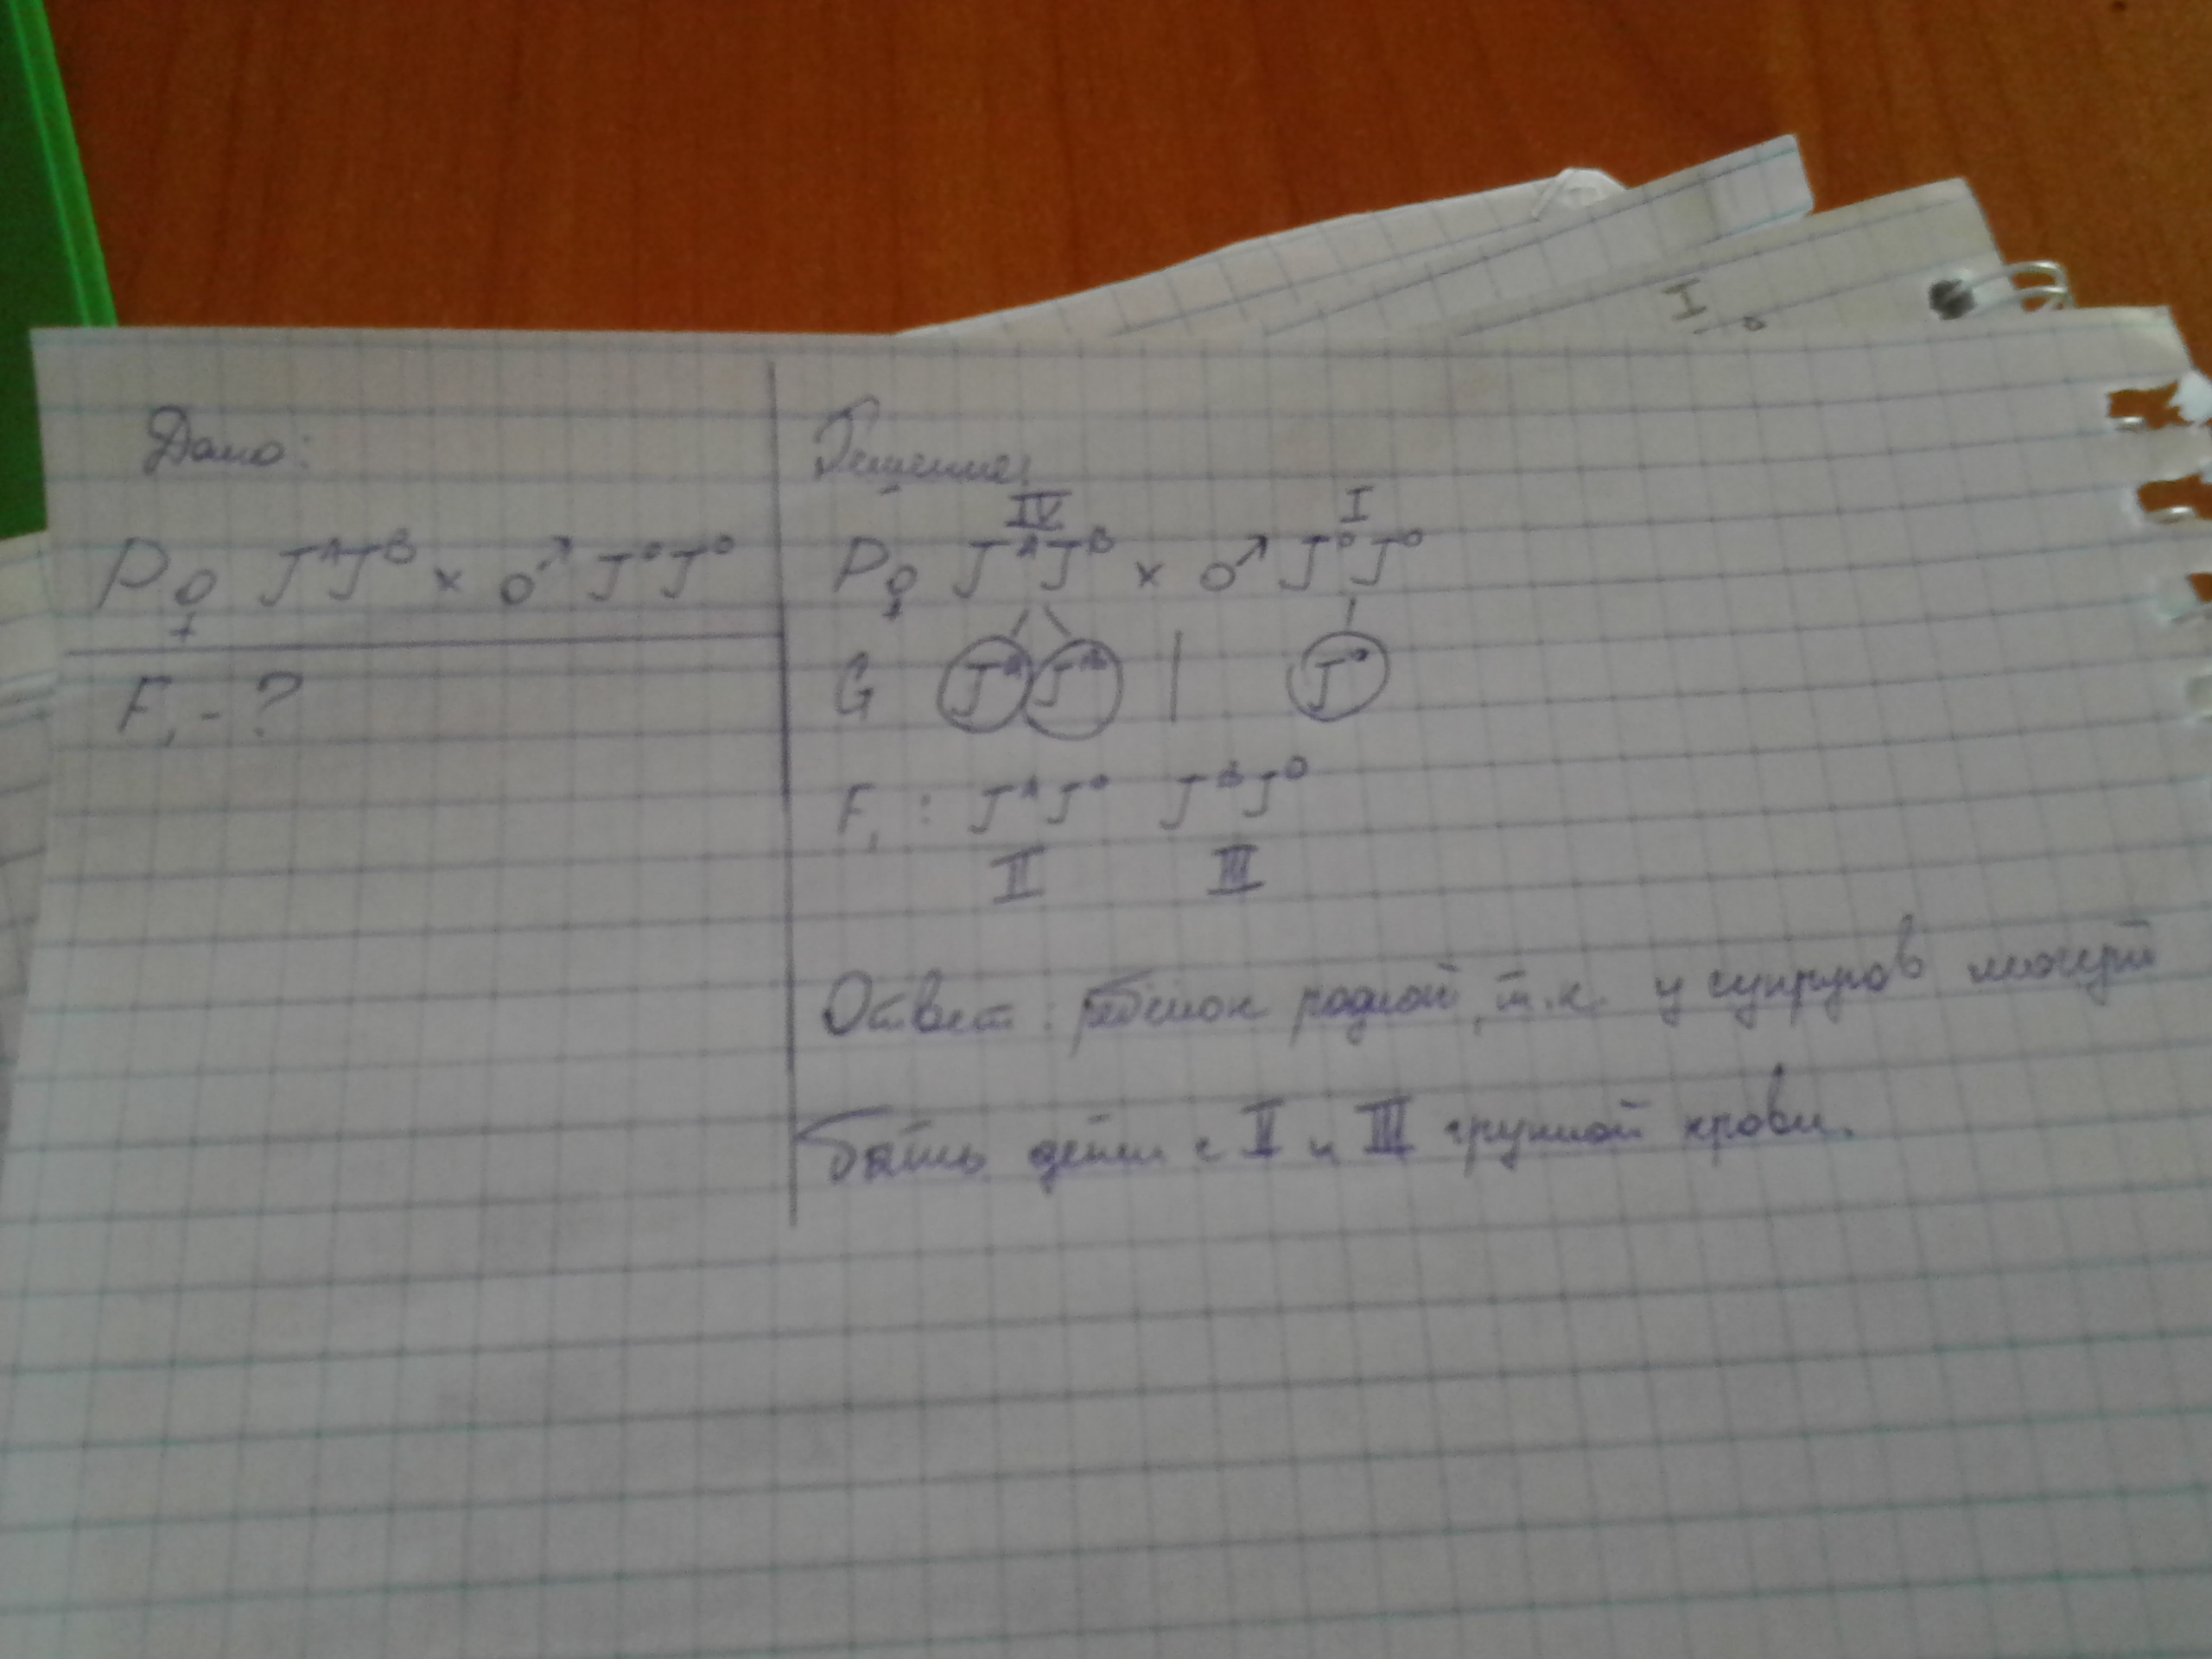 Дано:
P ♀ JᴬJᴮ × ♂ J⁰J⁰
F₁ - ?
Решение:
IV I
P ♀ JᴬJᴮ × ♂ J⁰J⁰
G Jᴬ Jᴮ | J⁰
F₁ : JᴬJ⁰ JᴮJ⁰
II III
Ответ: ребенок родной, т.к. у супругов могут
быть дети с II и III группой крови.
I